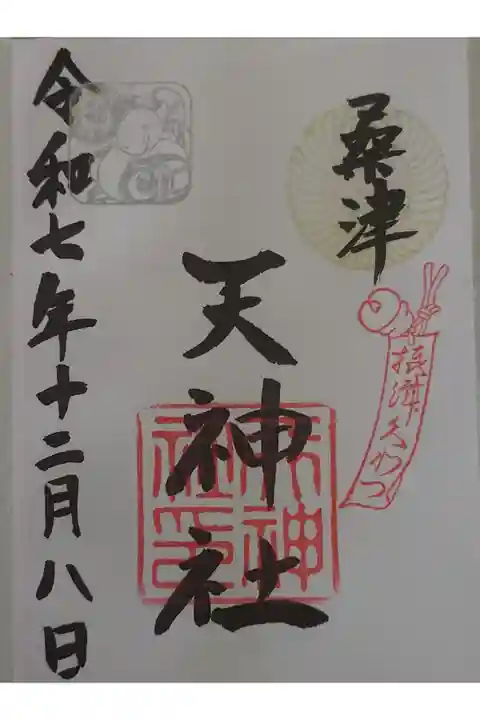 桑津
摂津久わつ
天神社
天神社印
令和七年十二月八日